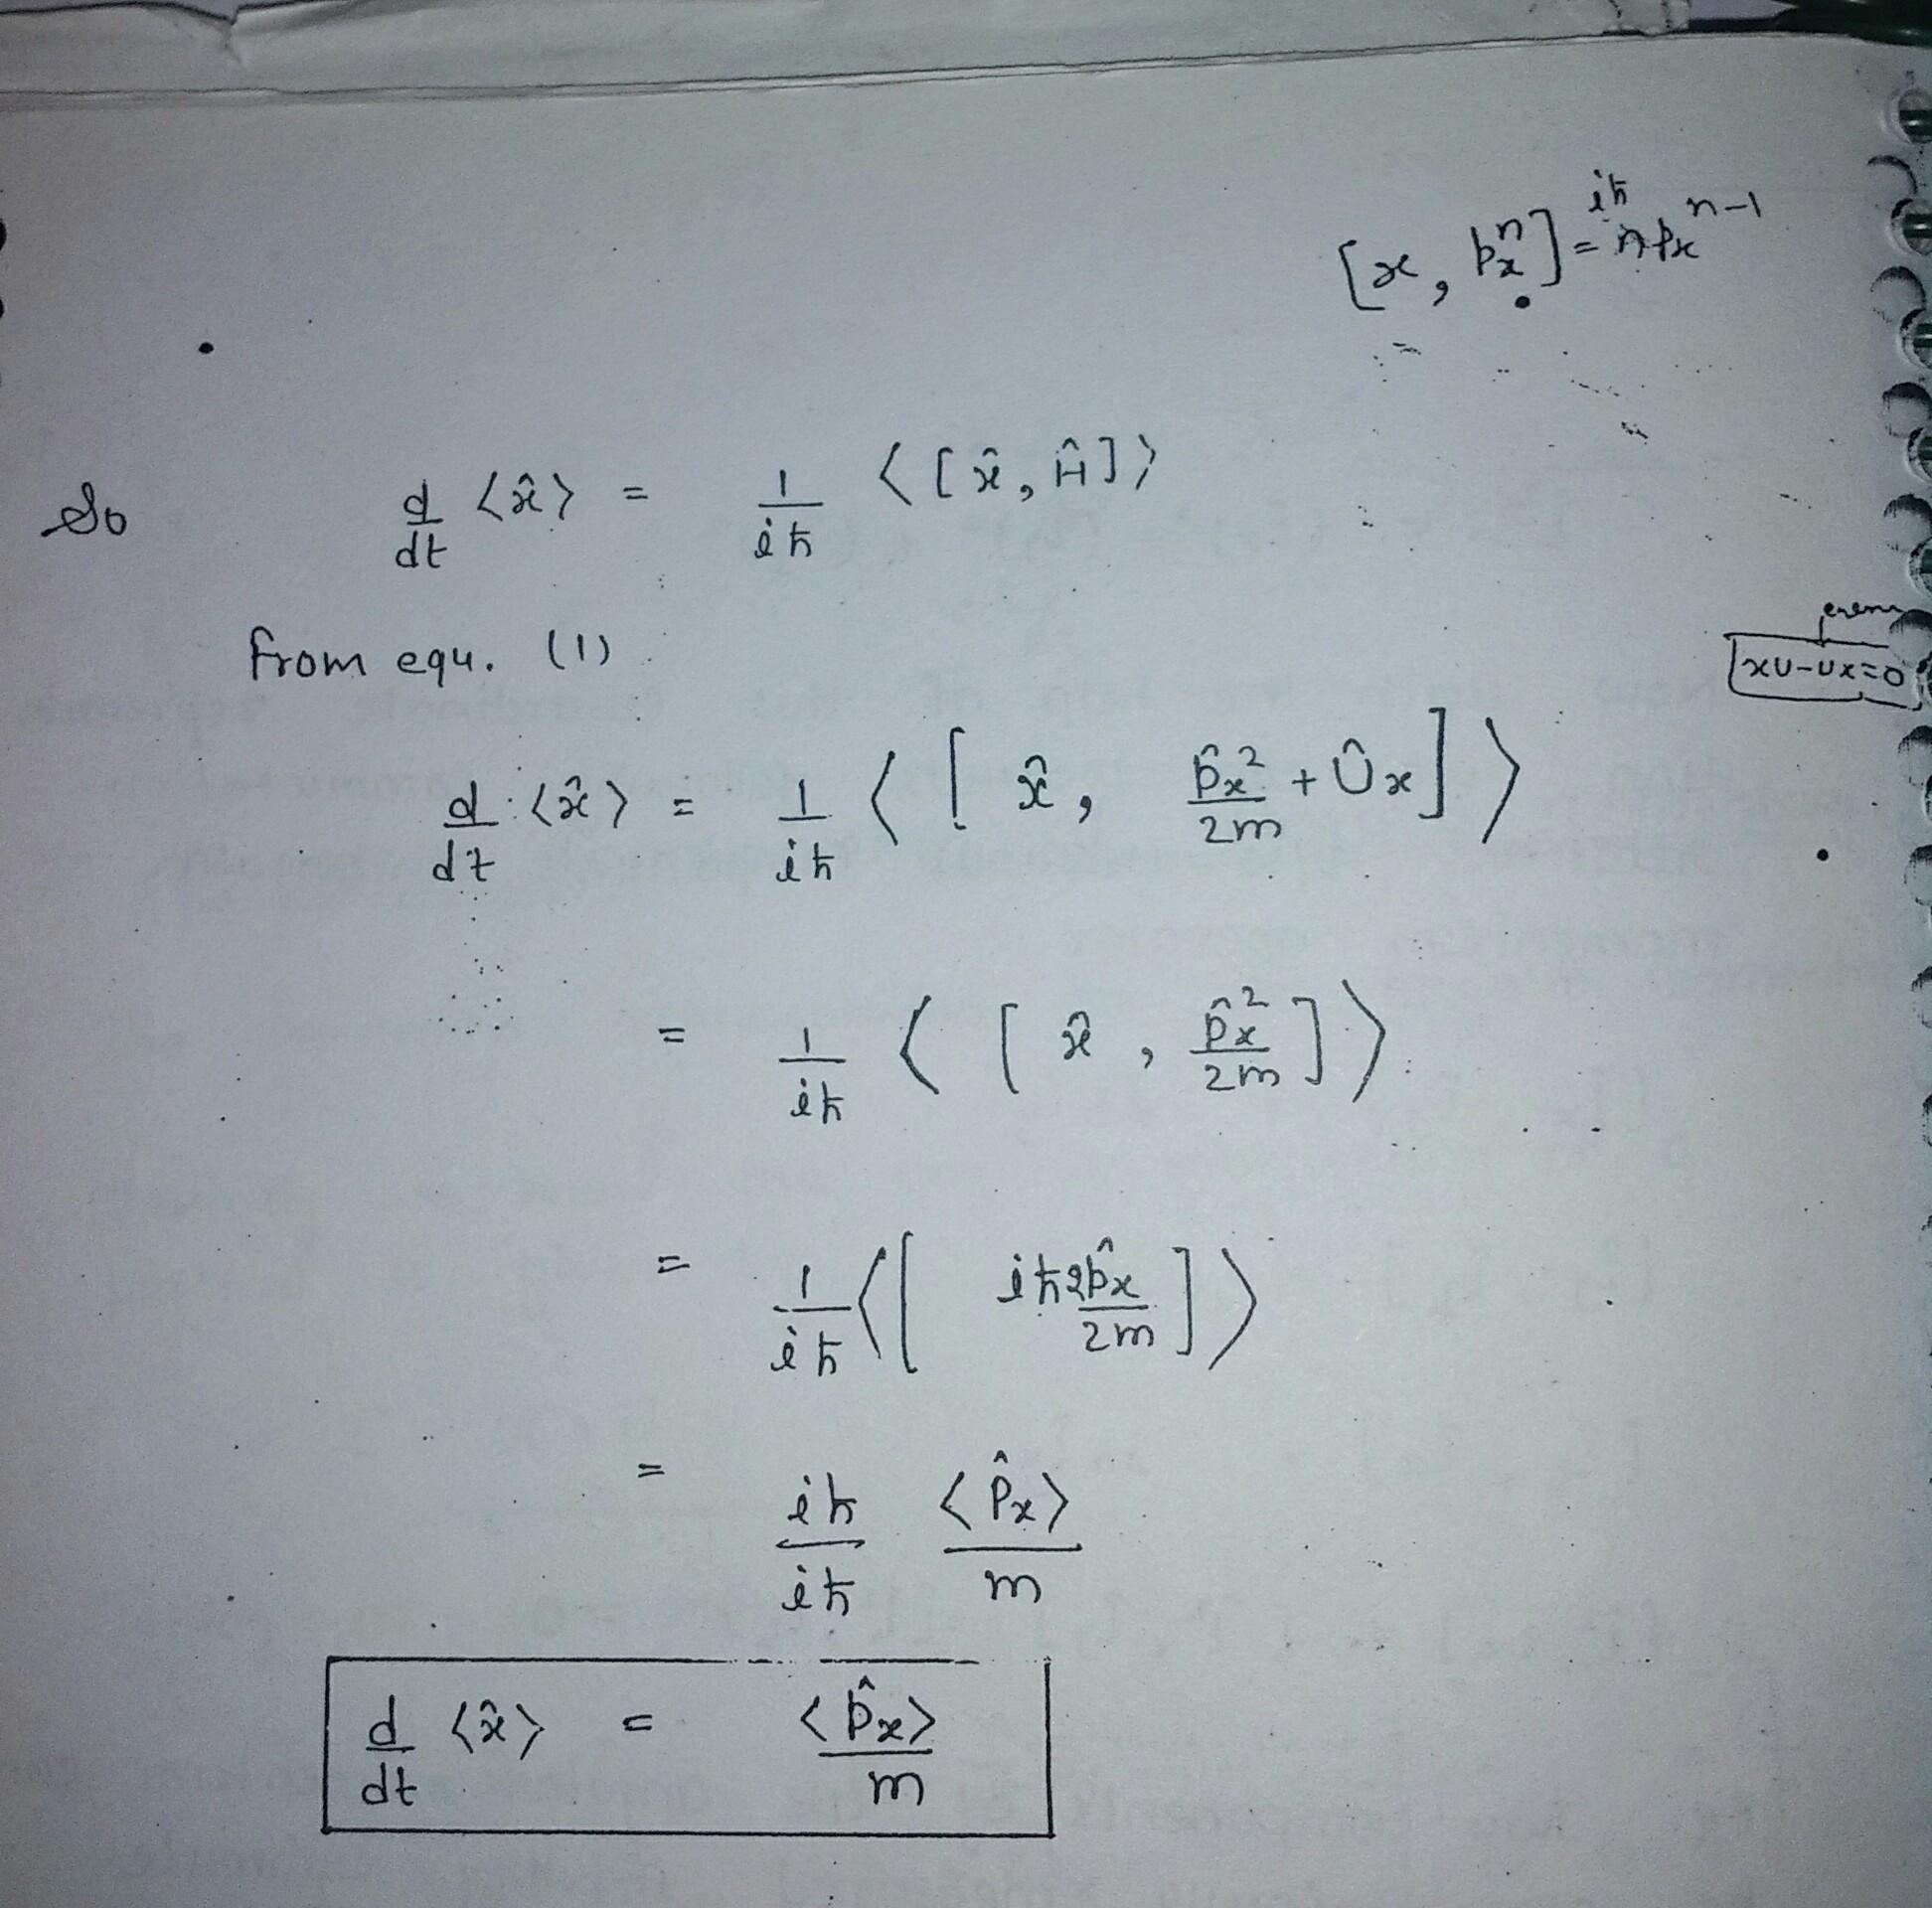 [x, pₓⁿ] = iħ n pₓⁿ⁻¹
So d/dt ⟨x̂⟩ = 1/iħ ⟨[x̂, Ĥ]⟩
From equ. (1)
xU-Ux=0
d/dt ⟨x̂⟩ = 1/iħ ⟨[x̂, p̂ₓ²/2m + Ûₓ]⟩
= 1/iħ ⟨[x̂, p̂ₓ²/2m]⟩
= 1/iħ ⟨[iħ 2p̂ₓ/2m]⟩
= iħ/iħ ⟨p̂ₓ⟩/m
d/dt ⟨x̂⟩ = ⟨p̂ₓ⟩/m